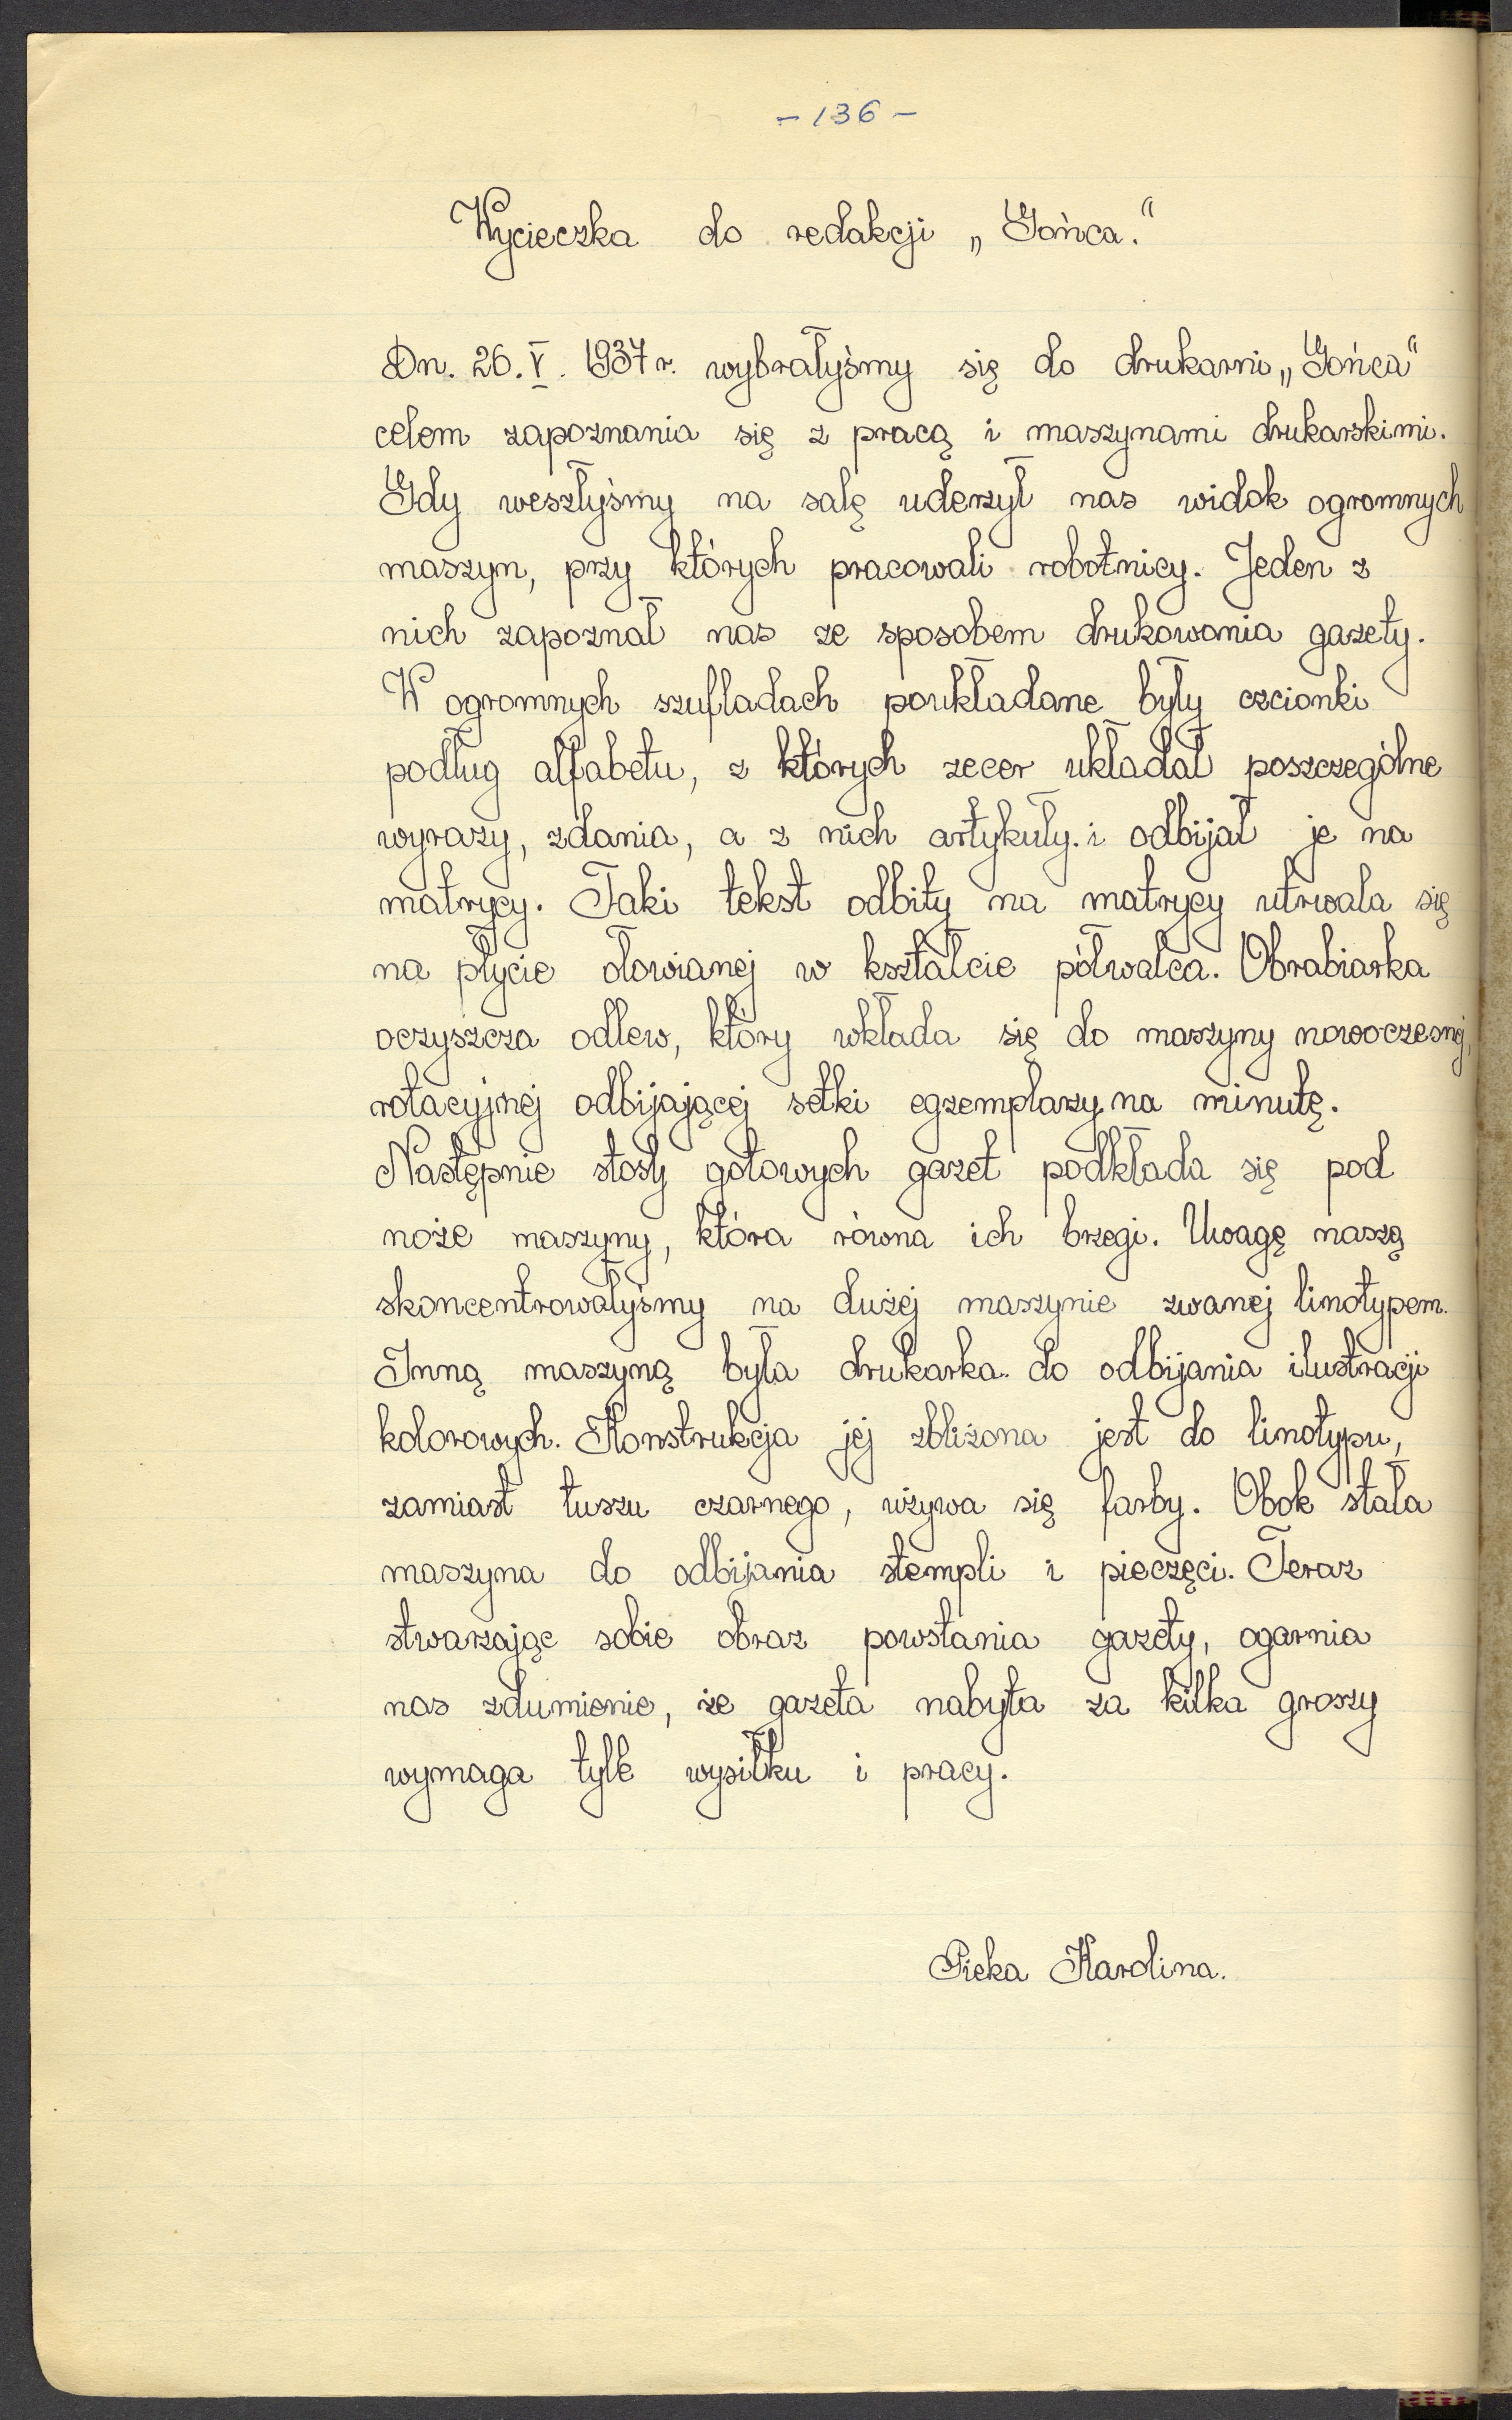 - 136 -
Wycieczka do redakcji „Gońca."
Dn. 26. V. 1937 r. wybrałyśmy się do drukarni „Gońca"
celem zapoznania się z pracą i maszynami drukarskimi.
Gdy weszłyśmy na salę uderzył nas widok ogromnych
maszyn, przy których pracowali robotnicy. Jeden z
nich zapoznał nas ze sposobem drukowania gazety.
W ogromnych szufladach poukładane były czcionki
podług alfabetu, z których zecer układał poszczególne
wyrazy, zdania, a z nich artykuły. i odbijał je na
matrycy. Taki tekst odbity na matrycy utrwala się
na płycie ołowianej w kształcie półwalca. Obrabiarka
oczyszcza odlew, który wkłada się do maszyny nowoczesnej,
rotacyjnej odbijającej setki egzemplarzy na minutę.
Następnie stosy gotowych gazet podkłada się pod
noże maszyny, która równa ich brzegi. Uwagę naszą
skoncentrowałyśmy na dużej maszynie zwanej linotypem.
Inną maszyną była drukarka do odbijania ilustracji
kolorowych. Konstrukcja jej zbliżona jest do linotypu,
zamiast tuszu czarnego, używa się farby. Obok stała
maszyna do odbijania stempli i pieczęci. Teraz
stwarzając sobie obraz powstania gazety, ogarnia
nas zdumienie, że gazeta nabyta za kilka groszy
wymaga tyle wysiłku i pracy.
Picka Karolina.